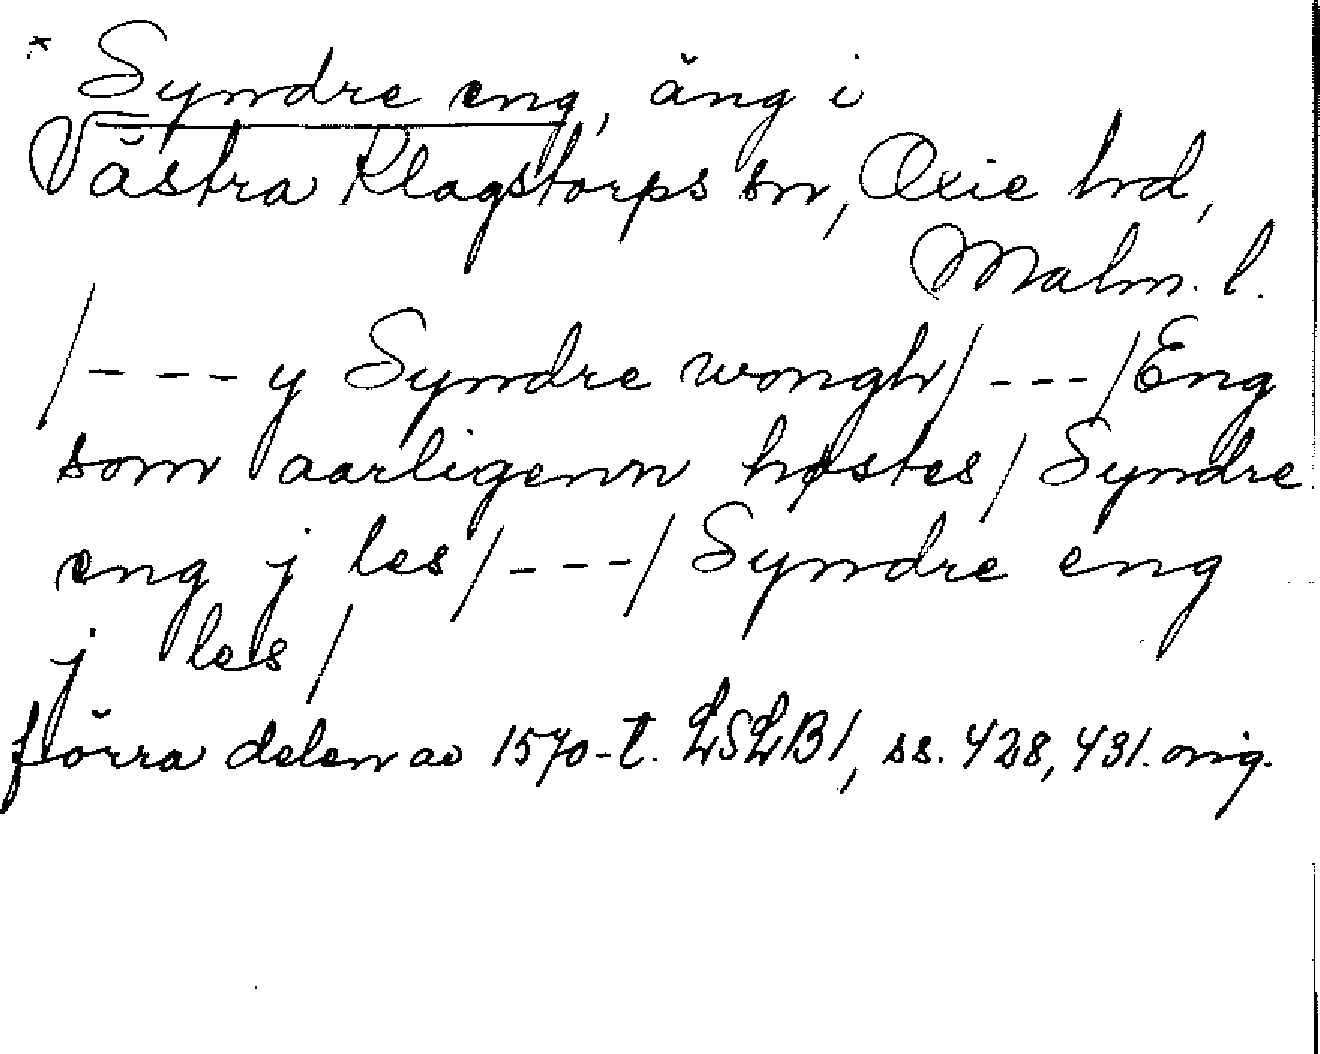 * Syndre eng, äng i
Västra Klagstorps sn, Oxie hd,
Malm. l.
/---y Syndre wongh/---/Eng
som aarligenn høstes/Syndre
eng j les/---/Syndre eng
j les/
förra delen av 1570-t. LSLB1, ss. 428, 431. orig.